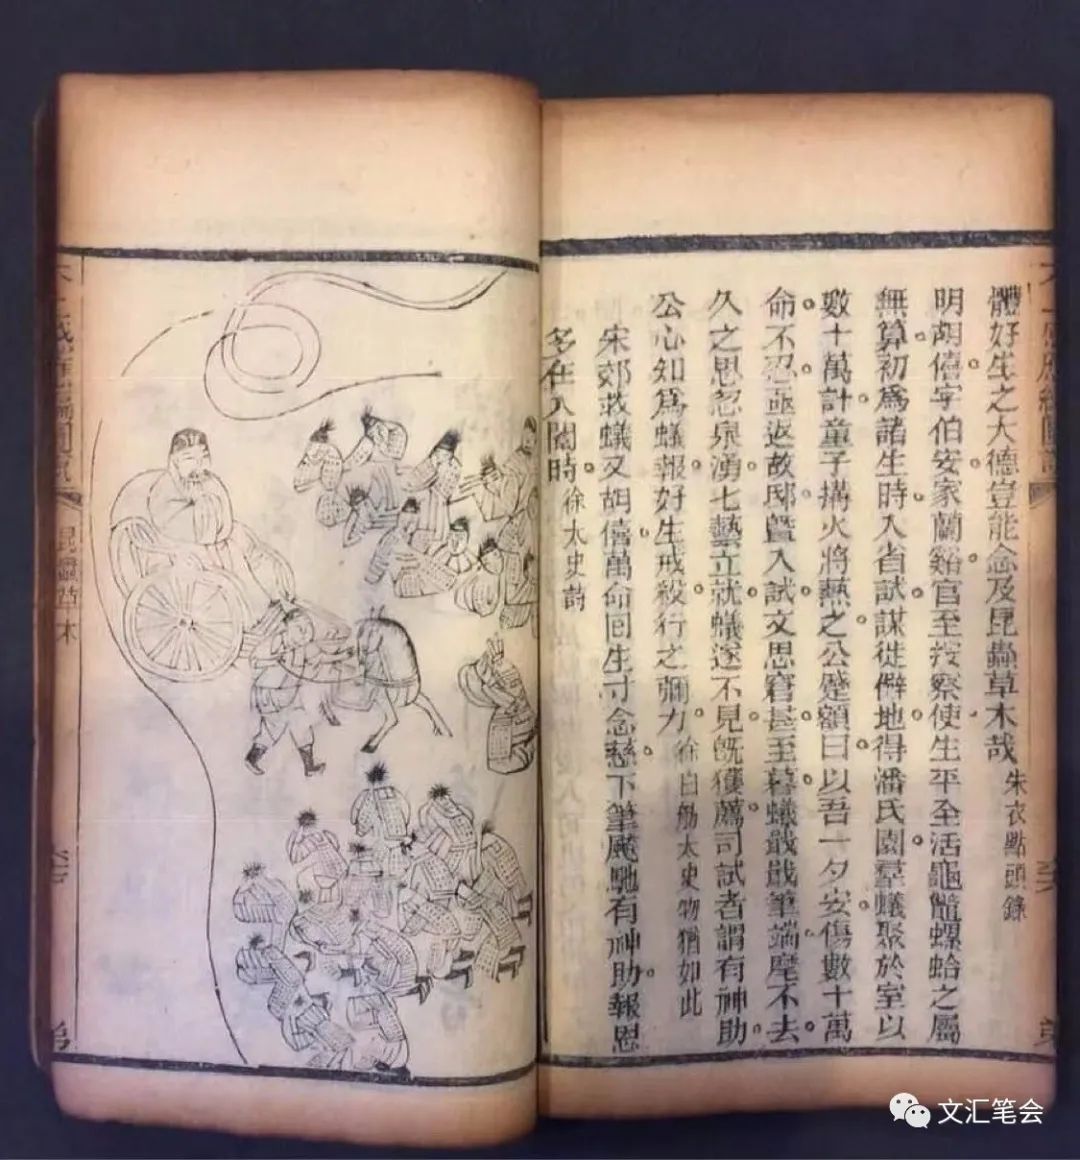 體好生之大德豈能念及昆蟲草木哉 朱衣點頭錄
明胡僖字伯安家蘭谿官至按察使生平全活龜鱔螺蛤之屬
無算初爲諸生時入省試謀徙僻地得潘氏園羣蟻聚於室以
數十萬計童子搆火將爇之公蹙額曰以吾一夕安傷數十萬
命不忍亟返故邸曁入試文思窘甚至暮蟻戢戢筆端麾不去
久之思忽泉湧七藝立就蟻遂不見旣獲薦司試者謂有神助
公心知爲蟻報好生戒殺行之彌力 徐白舫太史物猶如此
宋郊救蟻又胡僖萬命囘生寸念慈下筆颷馳有神助報恩
多在入闈時 徐太史詩
昆蟲草木
文汇笔会